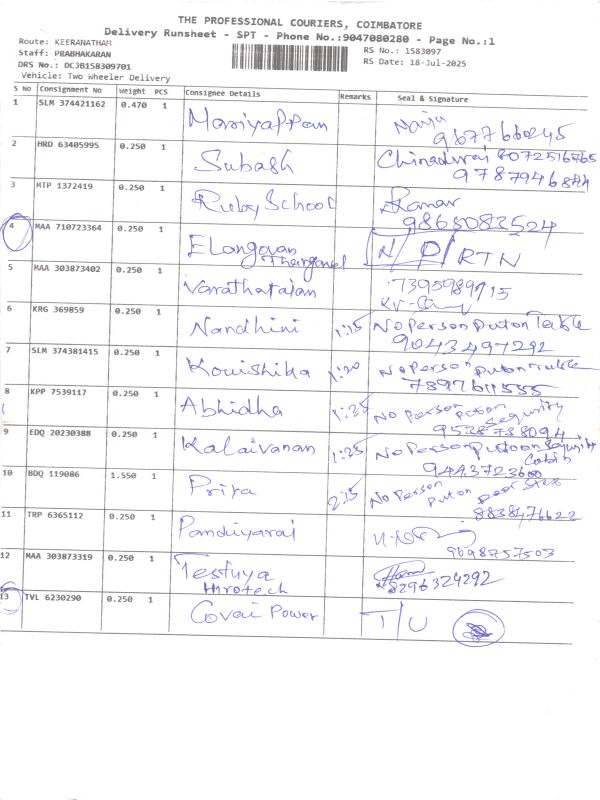 THE PROFESSIONAL COURIERS, COIMBATORE
Delivery Runsheet - SPT - Phone No.:9047080280 - Page No.:1
Route: KEERANATHAM
RS No.: 1583097
Staff: PRABHAKARAN
RS Date: 18-Jul-2025
DRS No.: DCJB158309701
Vehicle: Two Wheeler Delivery
S No Consignment No Weight PCS Consignee Details Remarks Seal & Signature
1 SLM 374421162 0.470 1 Mariyappan
9677766245
2 HRD 63405995 0.250 1 Subash Chinadurai 8072516765
9787946844
3 MTP 1372419 0.250 1 Ruby School Raman
9863083524
4 MAA 710723364 0.250 1 Elangovan N/D/RTN
Thangavel
5 MAA 303873402 0.250 1 Varatharajan 7395989915
6 KRG 369859 0.250 1 Nandhini 1:15 No Person Puton Table
9043497292
7 SLM 374381415 0.250 1 Kowishika 1:20 No Person Puton Table
7397611555
8 KPP 7539117 0.250 1 Abhidha 1:25 No Person Puton
Segunity
9538738094
9 EDQ 20230388 0.250 1 Kalaivanan 1:25 No Person Putoon Segunity
Cabin
9443723600
10 BDQ 119086 1.550 1 Priya 2:15 No Person Puton Door Step
8838476622
11 TRP 6365112 0.250 1 Pandiyaraj
9098757503
12 MAA 303873319 0.250 1 Testuya
Hirotech
8296324292
13 TVL 6230290 0.250 1 Covai Power T/U